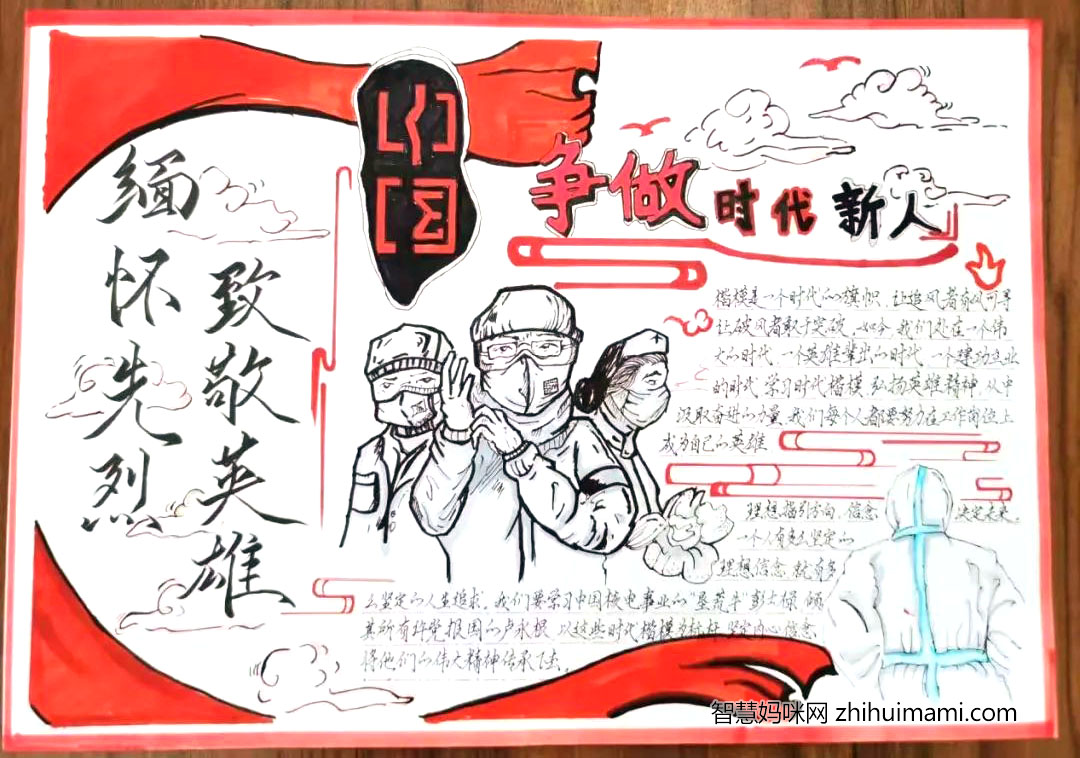 缅怀先烈
致敬英雄
争做时代新人
楷模是一个时代的旗帜 让追风者有风可寻
让破风者敢于突破 如今 我们处在一个伟
大的时代 一个英雄辈出的时代 一个建功立业
的时代 学习时代楷模 弘扬英雄精神 从中
汲取奋进的力量 我们每个人都要努力在工作岗位上
成为自己的英雄
理想指引方向 信念 决定未来。
一个人有多么坚定的
理想信念 就有多
么坚定的人生追求。我们要学习中国核电事业的"垦荒牛"彭士禄 倾
其所有许党报国的卢永根 以这些时代楷模为标杆 坚定内心信念
将他们的伟大精神传承下去。
智慧妈咪网 zhihuimami.com